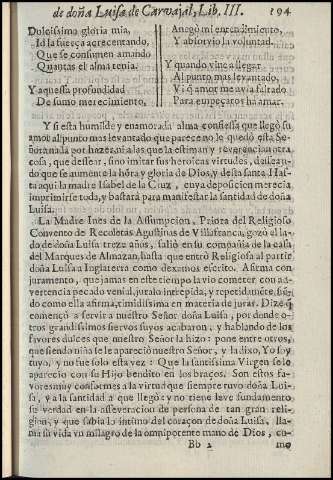 de doña Luisa de Carvajal, Lib. III. 194
Dulcissimo gloria mia,
Id la fuerça acrecentando,
Que se consumen amando
Quantas el alma tenia.
Y aquessa profundidad
De sumo merecimiento,
Anegó mi entendimiento,
Y absorvio la voluntad.
Y quando vine a llegar
Al punto mas levantado,
Vi que amor me avia faltado
Para empeçaros ha amar.
Y si esta humilde y enamorada alma confiessa que llegó su
amor al punto mas levantado que parece no le quedó esta Se-
ñora nada por hazer, ni a las que la estiman y reverencian otra
cosa, que dessear, sino imitar sus heroicas virtudes, dessean-
do que se aumente la hōra y gloria de Dios, y desta santa. Has-
ta aqui la madre Isabel de la Cruz, cuya deposicion merecia
imprimirse toda, y bastará para manifestar la santidad de doña
Luisa.
La Madre Ines de la Assumpcion, Priora del Religioso
Convento de Recoletas Agustinas de Villafranca, gozó el la-
do de doña Luisa treze años, salió en su compañia de la casa
del Marques de Almazan, hasta que entró Religiosa al partir
doña Luisa a Inglaterra como dexamos escrito. Afirma con
juramento, que jamas en este tiempo la vio cometer con ad-
vertencia pecado venial, juralo intrepida, y repetidamēte, siē-
do como ella afirma, timidissima en materia de jurar. Dize q̄
començò a servir a nuestro Señor doña Luisa, por donde o-
tros grandissimos siervos suyos acabaron, y hablando de los
favores dulces que nuestro Señor la hizo: pone entre otros,
que siendo niña se le apareció nuestro Señor, y la dixo, Yo soy
tuyo, y no fue solo esta vez: Que la santissima Virgen se le
aparecio con su Hijo bendito en los braços. Son estos fa-
vores muy conformes a la virtud que siempre tuvo doña Lui-
sa, y a la santidad a que llegó: y no tiene leve fundamento
su verdad en la asseveracion de persona de tan gran reli-
gion, y que sabia lo intimo del coraçon de doña Luisa, lla-
ma su vida vn milagro de la omnipotente mano de Dios, co-
Bb 2 mo